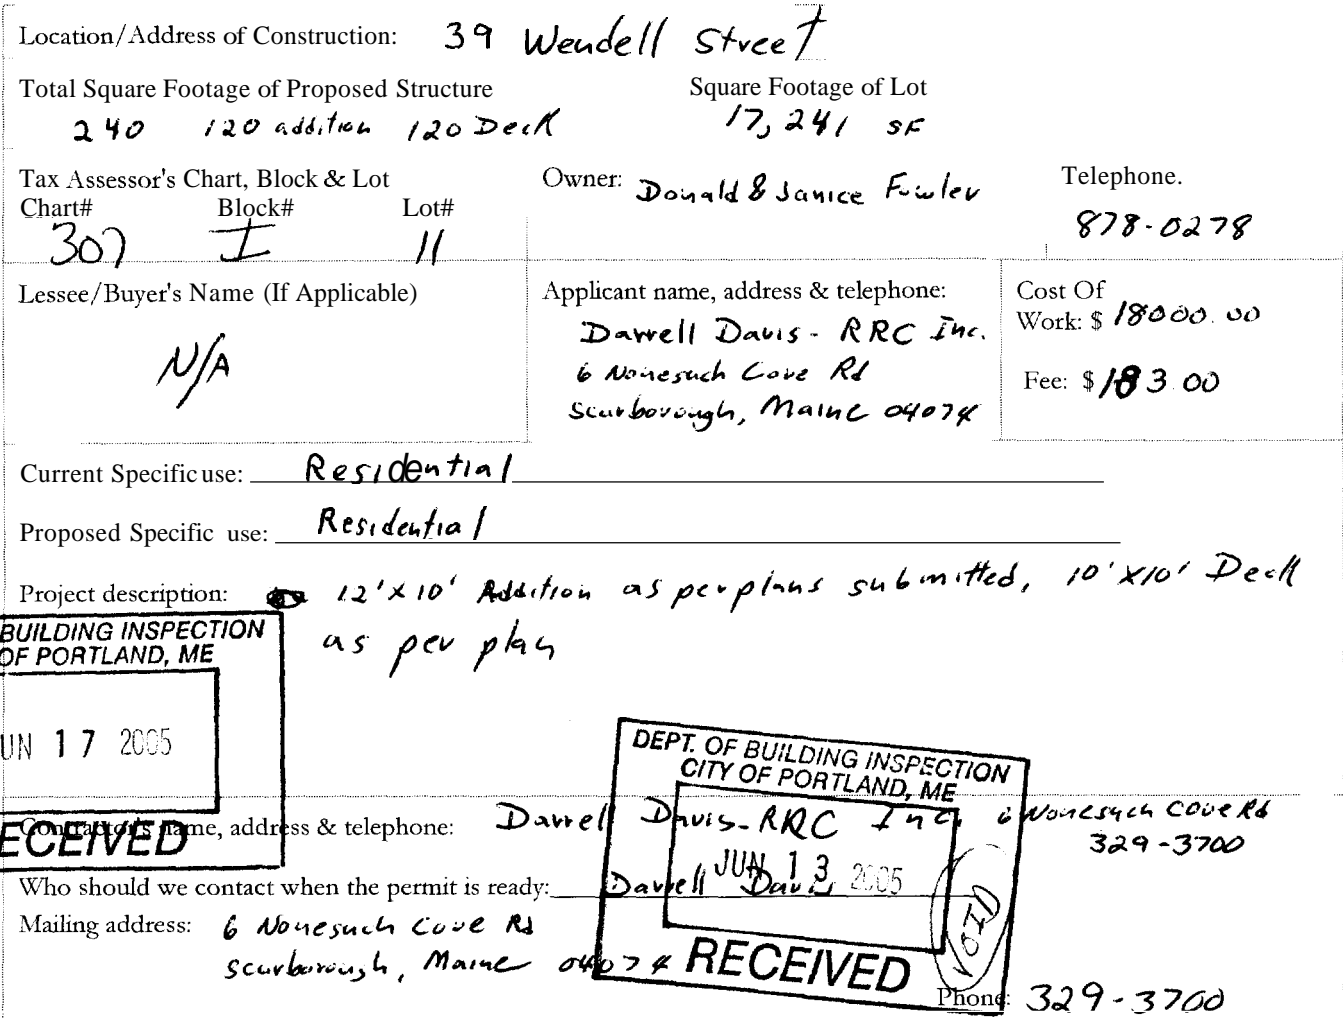 Location/Address of Construction: 39 Wendell Street
Total Square Footage of Proposed Structure Square Footage of Lot
240 120 addition 120 Deck 17,241 SF
Tax Assessor's Chart, Block & Lot Owner: Donald & Janice Fowler Telephone.
Chart# Block# Lot# 878-0278
307 I 11
Lessee/Buyer's Name (If Applicable)
N/A
Applicant name, address & telephone:
Darrell Davis - RRC Inc.
6 Nonesuch Cove Rd
Scarborough, Maine 04074
Cost Of
Work: $ 18000.00
Fee: $ 183.00
Current Specific use: Residential
Proposed Specific use: Residential
Project description: 12'x10' Addition as per plans submitted, 10'x10' Deck
as per plan
BUILDING INSPECTION
OF PORTLAND, ME
UN 17 2005
ECEIVED
DEPT. OF BUILDING INSPECTION
CITY OF PORTLAND, ME
JUN 13 2005
RECEIVED
VOID
Contractor's name, address & telephone: Darrell Davis - RRC Inc. 6 Nonesuch Cove Rd
329-3700
Who should we contact when the permit is ready: Darrell Davis
Mailing address: 6 Nonesuch Cove Rd
Scarborough, Maine 04074
Phone: 329-3700